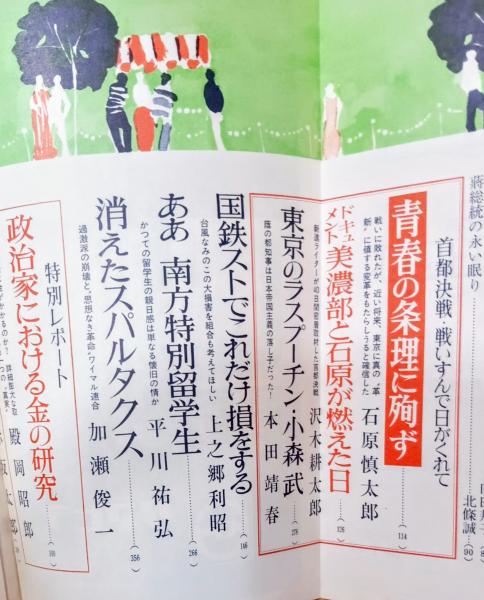 蔣総統の永い眠り
北條誠
(90)
首都決戦・戦いすんで日がくれて
青春の条理に殉ず
戦いに敗れたが、近い将来、東京に真の“革
新”に値する変革をもたらしうると確信した
石原慎太郎
(114)
ドキュメント 美濃部と石原が燃えた日
新進ライターが40日間密着取材した首都決戦
沢木耕太郎
(126)
東京のラスプーチン・小森武
蔭の都知事は日本帝国主義の落し子だった!
本田靖春
(178)
国鉄ストでこれだけ損をする
台風なみのこの大損害を組合も考えてほしい
上之郷利昭
(146)
ああ 南方特別留学生
かつての留学生の親日感は単なる懐旧の情か
平川祐弘
(266)
消えたスパルタクス
過激派の崩壊と、“思想なき革命”ワイマル連合
加瀬俊一
(356)
特別レポート
政治家における金の研究
殿岡昭郎
太郎